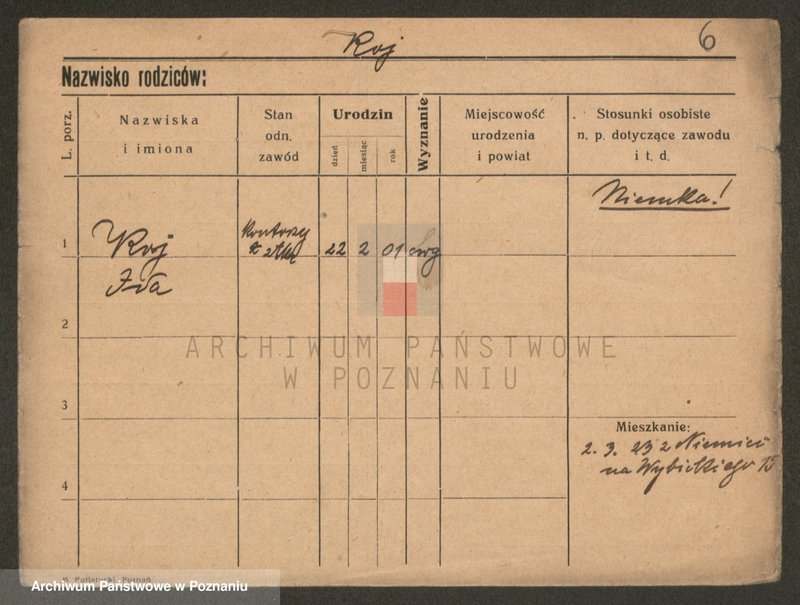 Koj
6
Nazwisko rodziców:
L. porz.
Nazwiska
i imiona
Stan
odn.
zawód
Urodzin
dzień
miesiąc
rok
Wyznanie
Miejscowość
urodzenia
i powiat
Stosunki osobiste
n. p. dotyczące zawodu
i t. d.
Niemka!
1
Koj
Ida
22
2
01
ewg
2
ARCHIWUM PAŃSTWOWE
W POZNANIU
3
4
Mieszkanie:
2. 3. 23 z Niemiec
na Wybickiego 15
Archiwum Państwowe w Poznaniu